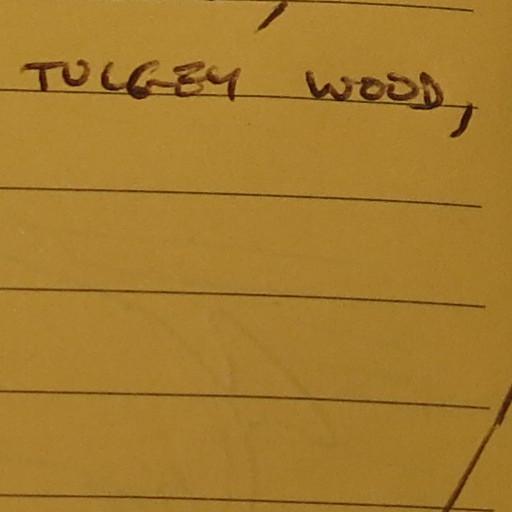 TULGEY WOOD,